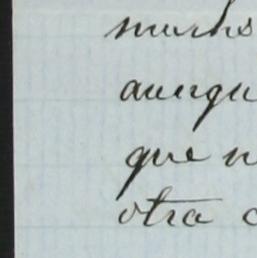 muchos
aunqu
que n
otra c